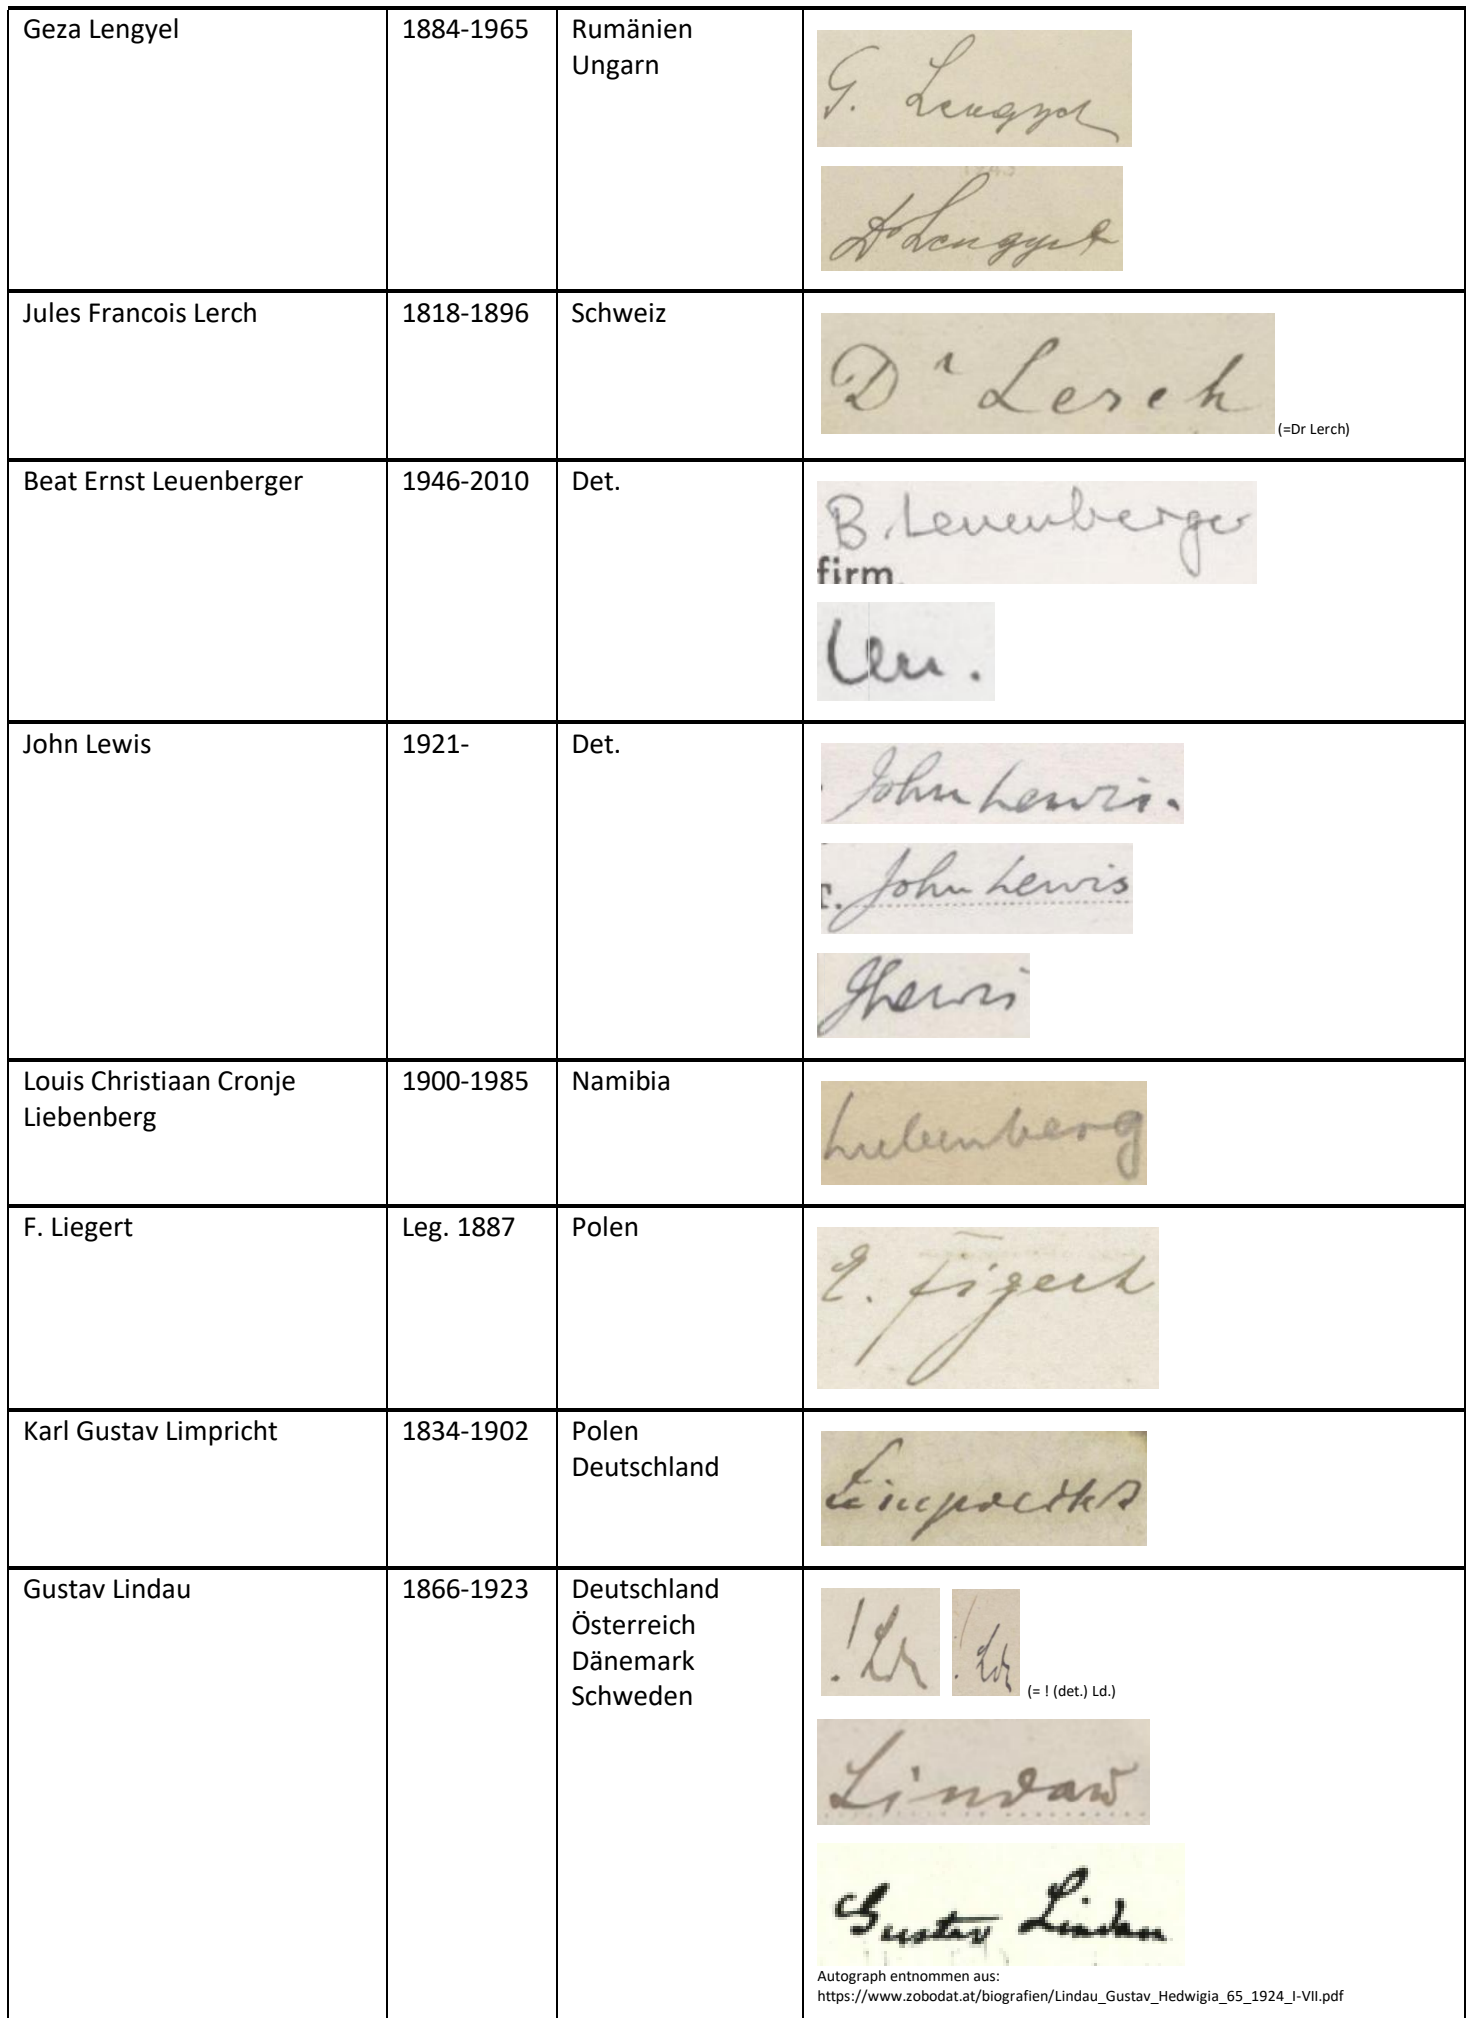 Geza Lengyel
1884-1965
Rumänien
Ungarn
G. Lengyel
Dr Lengyel
Jules Francois Lerch
1818-1896
Schweiz
Dr Lerch
(=Dr Lerch)
Beat Ernst Leuenberger
1946-2010
Det.
B. Leuenberger
firm.
Leu.
John Lewis
1921-
Det.
John Lewis.
John Lewis
JLewis
Louis Christiaan Cronje
Liebenberg
1900-1985
Namibia
Liebenberg
F. Liegert
Leg. 1887
Polen
E. Figert
Karl Gustav Limpricht
1834-1902
Polen
Deutschland
Limpricht
Gustav Lindau
1866-1923
Deutschland
Österreich
Dänemark
Schweden
! Ld
! Ld
(= ! (det.) Ld.)
Lindau
Gustav Lindau
Autograph entnommen aus:
https://www.zobodat.at/biografien/Lindau_Gustav_Hedwigia_65_1924_I-VII.pdf